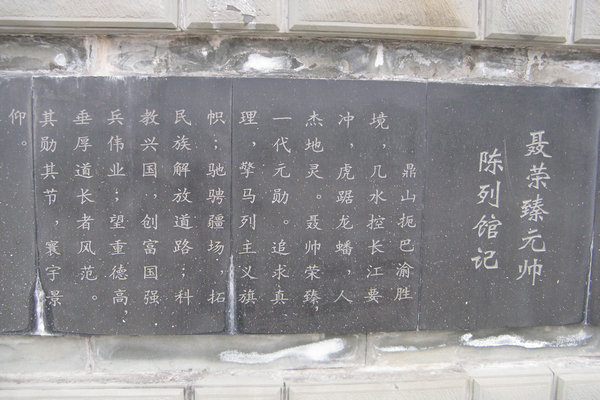 聂荣臻元帅
陈列馆记
鼎山扼巴渝胜
境，几水控长江要
冲，虎踞龙蟠，人
杰地灵。聂帅荣臻，
一代元勋。追求真
理，擎马列主义旗
帜；驰骋疆场，拓
民族解放道路；科
教兴国，创富国强
兵伟业；望重德高，
垂厚道长者风范。
其勋其节，寰宇景
仰。